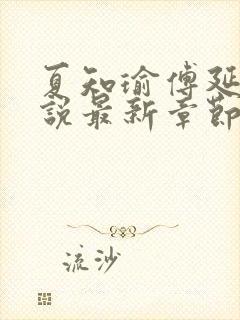 夏知瑜傅延
說最新章節
流沙